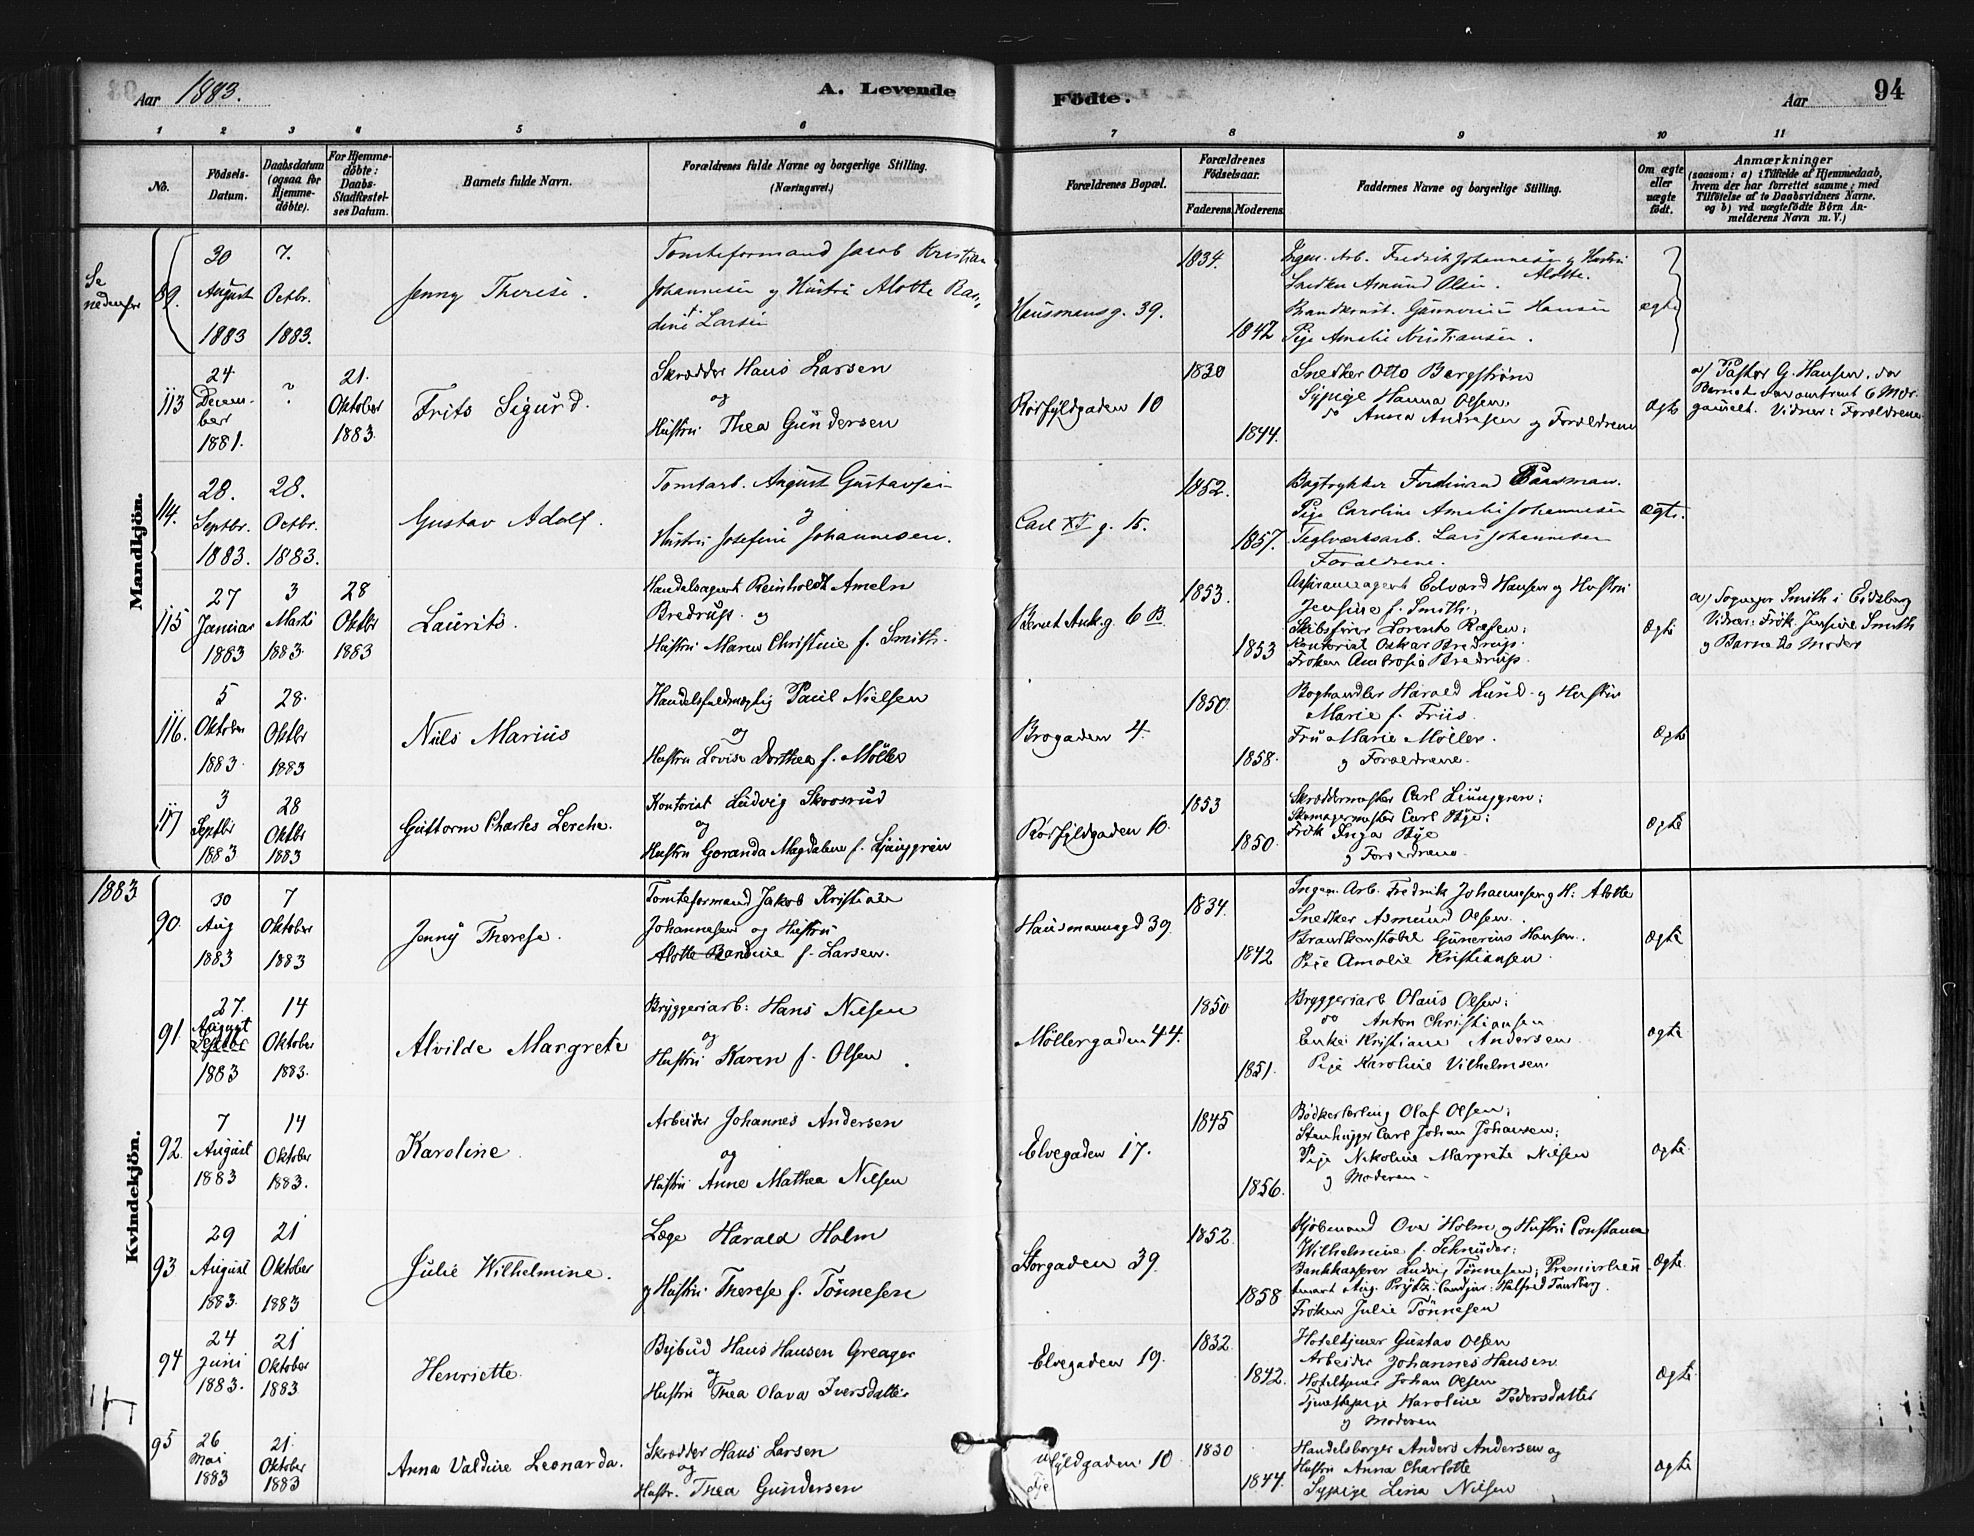 Aar 1883.
A. Levende
Fødte.
Aar
94
1 2 3 4 5 6 7 8 9 10 11
No.
Fødsels-Datum.
Daabsdatum (ogsaa for Hjemme-døbte).
For Hjemme-døbte: Daabs-Stadfæstel-ses Datum.
Barnets fulde Navn.
Forældrenes fulde Navne og borgerlige Stilling. (Næringsvei.)
Forældrenes Bopæl.
Forældrenes Fødselsaar.
Faderens. Moderens.
Faddernes Navne og borgerlige Stilling.
Om ægte eller uægte født.
Anmærkninger
(saasom: a) i Tilfælde af Hjemmedaab, hvem der har forrettet samme, med Tilføielse af to Daabsvidners Navne, og b) ved uægtefødte Børn An-melderens Navn m. V.)
Mandkjön.
Se nedenfor
89.
30 August 1883
7. Octbr. 1883.
Jenny Therese.
Tomteformand Jacob Kristian
Johannesen og Hustru Alotte Ran-
dine Larsen
Hausmansg. 39.
1834. 1842
Ingen. Arb. Fredrik Johannesen og Hustru Alotte.
Snedker Asmund Olsen.
Brandkonst. Gunnerius Hansen
Pige Amalie Kristiansen.
ægte
113
24 December 1881.
?
21. Oktober 1883.
Frits Sigurd.
Skrædder Hans Larsen
og
Hustru Thea Gundersen
Rørfyldgaden 10
1830 1844.
Snedker Otto Bergstrøm
Sypige Hanna Olsen.
do Anna Andresen og Forældrene
Ægte
a) Pastor G. Hansen, da
Barnet var omtrent 6 Mdr.
gammelt. Vidner: Forældrene
114.
28. Septbr. 1883.
28. Octbr. 1883.
Gustav Adolf.
Tomtarb. August Gustavsen
og
Hustru Josefine Johannesen.
Carl XI g. 15.
1852. 1857.
Bogtrykker Ferdinand Paasman.
Pige Caroline Amelie Johannesen
Teglværksarb. Lars Johannesen
Forældrene.
ægte.
115
27 Januar 1883
3 Marts 1883.
28 Oktbr 1883
Laurits.
Handelsagent Reinholdt Ameln
Bredrup. og
Hustru Maren Christine f. Smith.
Bernt Ank.g. 6 B.
1853. 1853
Assuranceagent Edvard Hansen og Hustru
Jensine f. Smith;
Skibsfører Lorents Ræsen;
Kontorist Oskar Bredrup.
Frøken Ambrosia Bredrup.
Ægte
a) Sogneprr Smith i Eidsberg
Vidner: Frøk. Jensine Smith
og Barnets Moder
116.
5 Oktober 1883.
28. Oktbr 1883
Niels Marius
Handelsfuldmægtig Paul Nielsen
og
Hustru Lovise Dorthea f. Møller
Brogaden 4.
1850. 1858.
Boghandler Harald Lund og Hustru
Marie f. Friis.
Fru Marie Møller.
og Forældrene.
Ægte
117
3 Septbr 1883
28 Oktbr 1883
Guttorm Charles Lerche.
Kontorist Ludvig Skoosrud
og
Hustru Goranda Magdalene f. Ljunggren
Rørfyldgaden 10.
1853 1850.
Skræddermester Carl Ljunggren;
Skomagermester Carl Bye;
Frøk Inga Bye
og Forældrene.
Ægte
1883
Kvindekjön.
90.
30 Aug 1883
7 Oktober 1883
Jenny Therese.
Tomteformand Jakob Kristian
Johannesen og Hustru
Alotte Randine f. Larsen.
Hausmannsgd 39.
1834. 1842
Ingen. Arb. Fredrik Johannsen og H: Alotte
Snedker Asmund Olsen.
Brandkonstabel Gunerius Hansen.
Pige Amalie Kristiansen
Ægte
91
27. August Septbr 1883
14 Oktober 1883.
Alvilde Margrete
Bryggeriarb: Hans Nilsen
og
Hustru Karen f. Olsen.
Møllergaden 44.
1850 1851.
Bryggeriarb Olaus Olsen;
do Anton Christiansen
Enke Kristiane Andersen
Pige Karoline Vilhelmsen.
Ægte
92
7 August 1883
14 Oktober 1883.
Karoline.
Arbeider Johannes Andersen
og
Hustru Anne Mathea Nilsen
Elvegaden 17.
1845 1856.
Bødkerlærling Olaf Olsen;
Stenhugger Carl Johan Johansen;
Pige Nikoline Margrete Nilsen
og Moderen.
Ægte.
93
29 August 1883.
21 Oktober 1883
Julie Wilhelmine.
Læge Harald Holm
og Hustru Therese f. Tønnesen
Storgaden 39.
1852. 1858
Kjøbmand Ove Holm og Hustru Constance
Wilhelmine f. Schrøder;
Bankkasserer Ludvig Tønnesen; Premierlieu-
tenant Aug. Prytz. Candjur. Halfred Tandberg.
Frøken Julie Tønnesen
Ægte.
94
24 Juni 1883.
21 Oktober 1883
Henriette.
Bybud Hans Hansen Greager
og
Hustru Thea Olava Iversdatter
Elvegaden 19.
1832. 1842.
Hoteltjener Gustav Olsen
Arbeider Johannes Hansen
Hoteltjener Johan Olsen
Tjenestepige Karoline Pedersdatter
og Moderen
Ægte
95
26 Mai 1883
21. Oktober 1883
Anna Valdine Leonarda.
Skrædder Hans Larsen
og
Hustr. Thea Gundersen
fyldgaden 10
1830 1844.
Handelsborger Anders Andersen og
Hustru Anna Charlotte
Sypige Lina Nilsen
Ægte